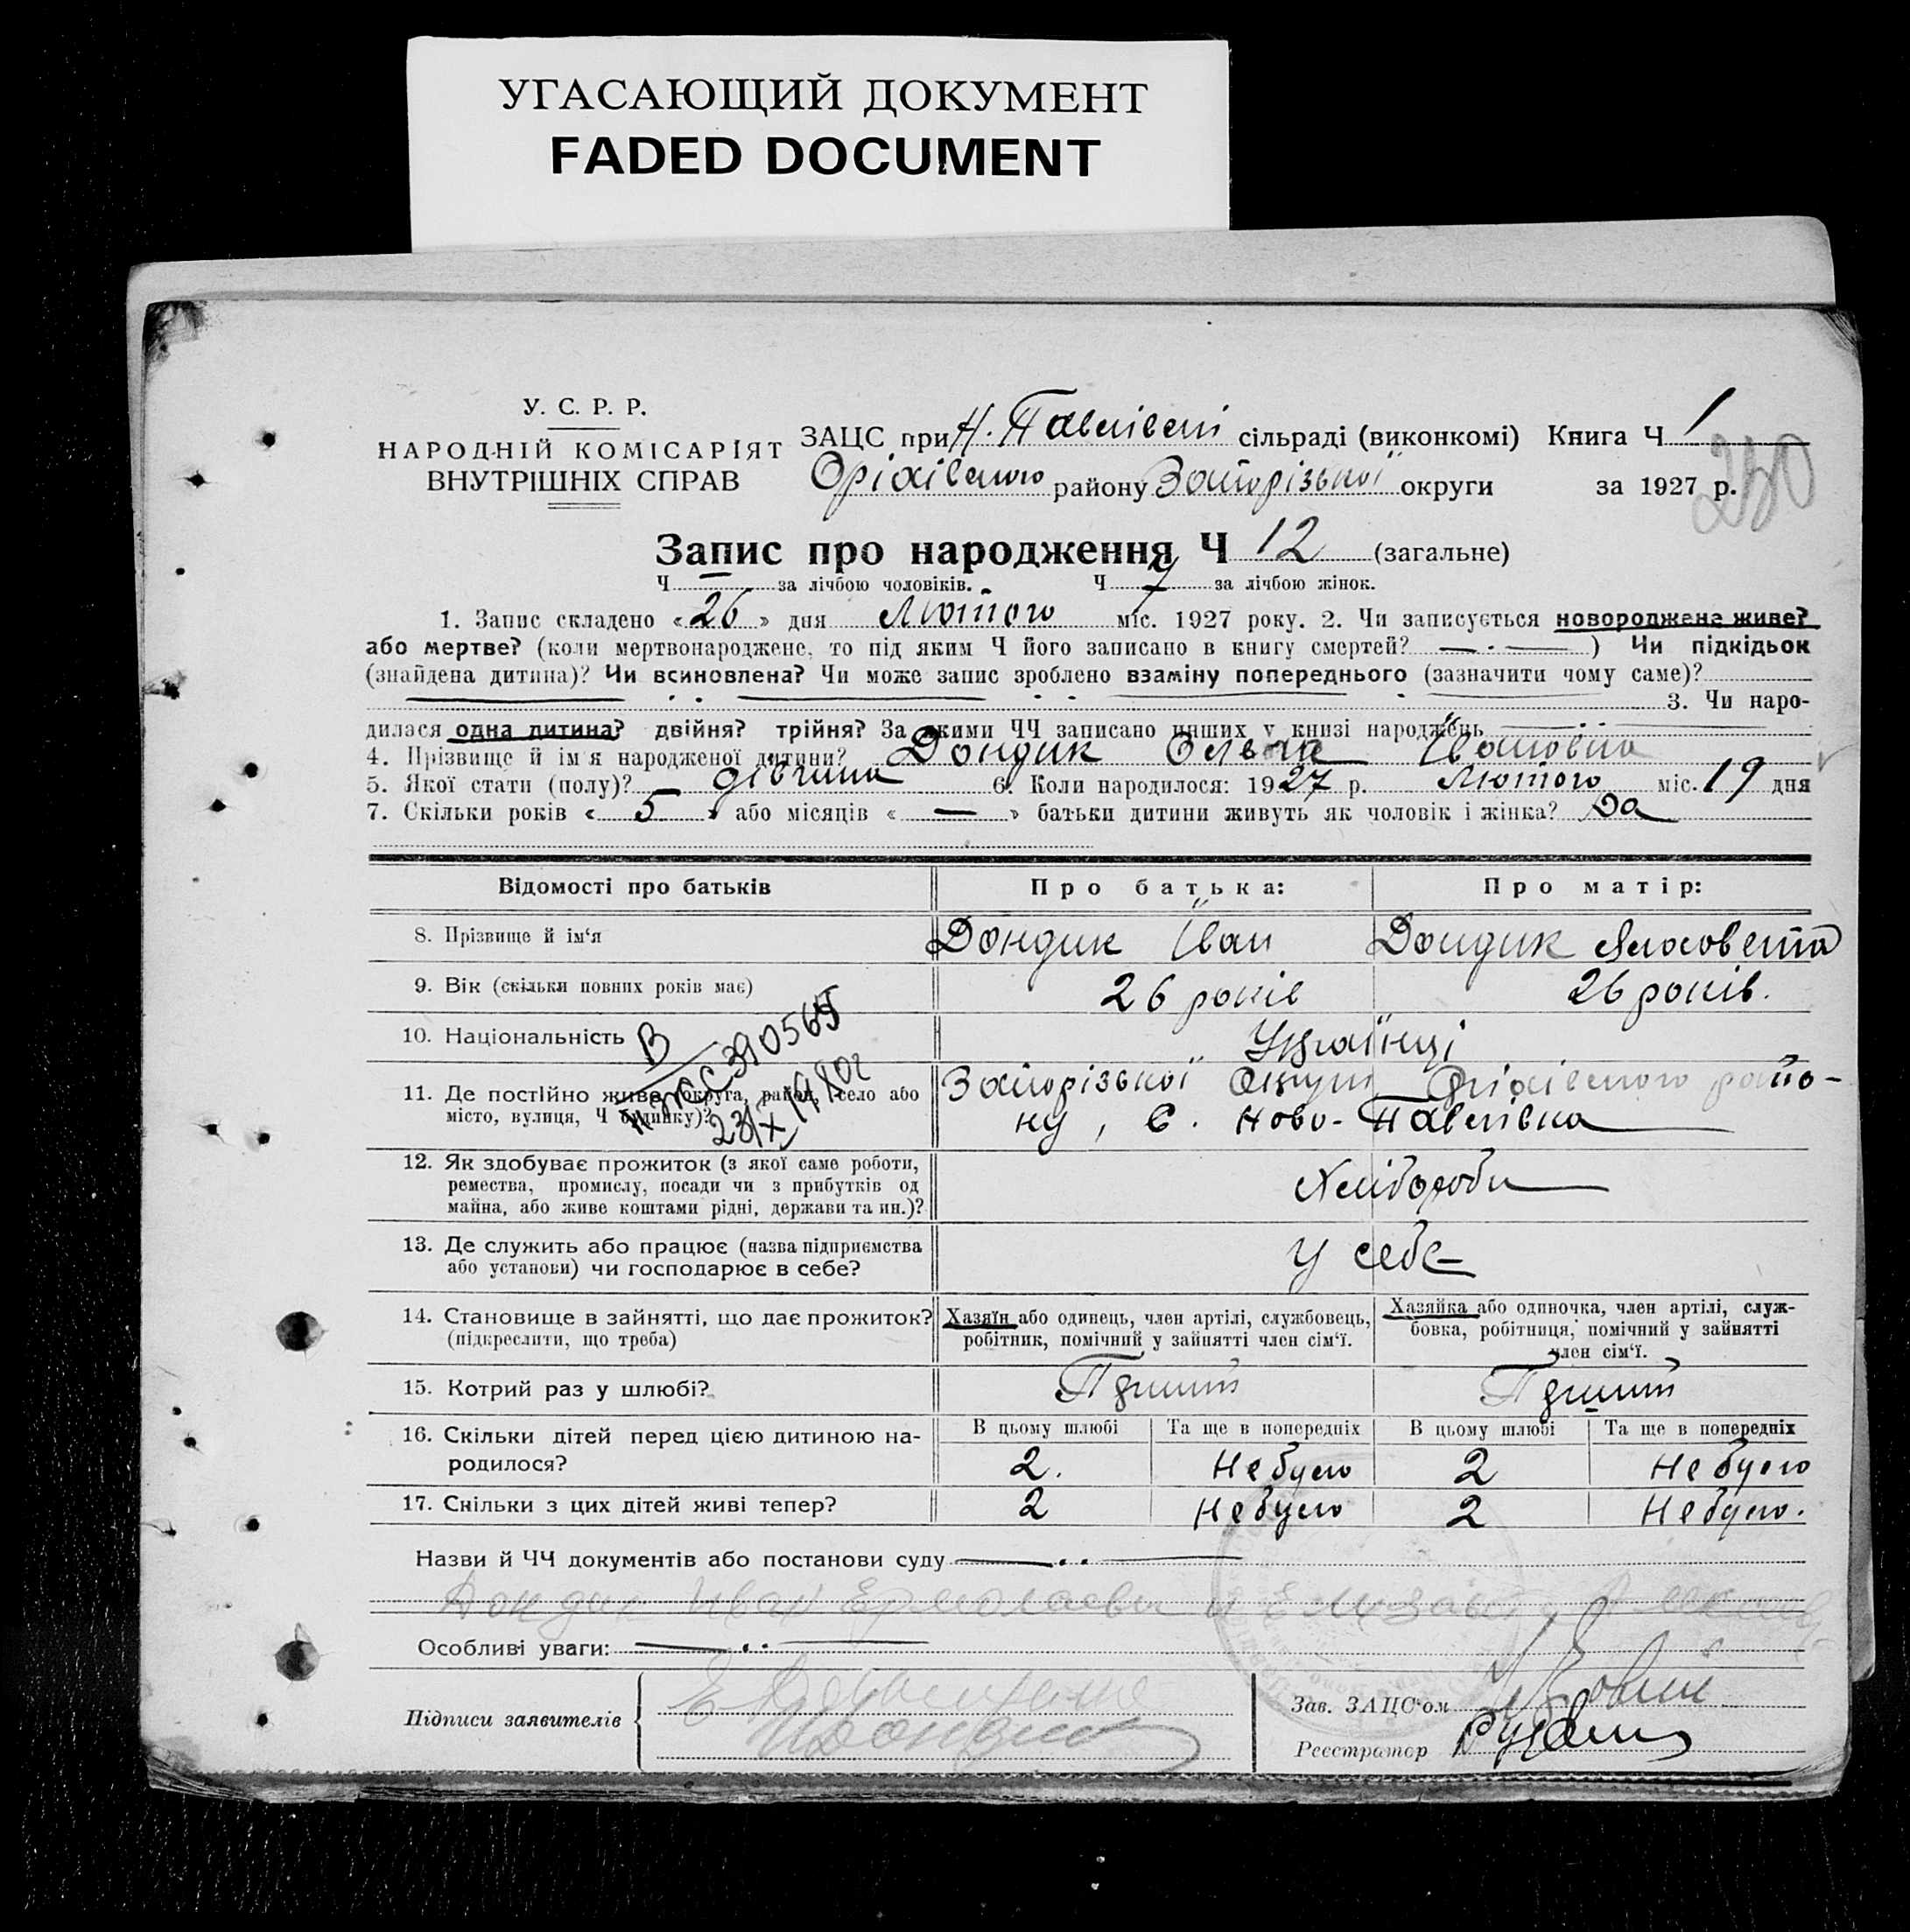 УГАСАЮЩИЙ ДОКУМЕНТ
FADED DOCUMENT
У. С. Р. Р.
НАРОДНІЙ КОМІСАРІЯТ
ВНУТРІШНІХ СПРАВ
ЗАЦС при Н. Павлівській сільраді (виконкомі) Книга Ч 1
Оріхівського району Запорізької округи за 1927 р.
230
Запис про народження Ч 12 (загальне)
Ч — за лічбою чоловіків. Ч 7 за лічбою жінок.
1. Запис складено «26» дня Лютого міс. 1927 року. 2. Чи записується новороджене живе?
або мертве? (коли мертвонароджене, то під яким Ч його записано в книгу смертей? —·— ) Чи підкідьок
(знайдена дитина)? Чи всиновлена? Чи може запис зроблено взаміну попереднього (зазначити чому саме)?
3. Чи наро-
дилася одна дитина? двійня? трійня? За якими ЧЧ записано инших у книзі народжень
4. Прізвище й ім'я народженої дитини? Дондик Івановна
5. Якої стати (полу)? дівчина 6. Коли народилося: 1927 р. Лютого міс. 19 дня
7. Скільки років «5» або місяців «—» батьки дитини живуть як чоловік і жінка? Да
Відомості про батьків Про батька: Про матір:
8. Прізвище й ім'я Дондик Іван Дондик Єлисовета
9. Вік (скільки повних років має) 26 років 26 років.
10. Національність Українці
В
390565
23/X 1980г
11. Де постійно живе (округа, район, село або
місто, вулиця, Ч будинку)?
Запорізької Округи Оріхівського райо-
ну, с. Ново-Павлівка
12. Як здобуває прожиток (з якої саме роботи,
ремества, промислу, посади чи з прибутків од
майна, або живе коштами рідні, держави та ин.)?
Хлібороби
13. Де служить або працює (назва підприємства
або установи) чи господарює в себе?
У себе
14. Становище в зайнятті, що дає прожиток?
(підкреслити, що треба)
Хазяїн або одинець, член артілі, службовець,
робітник, помічний у зайнятті член сім'ї.
Хазяйка або одиночка, член артілі, служ-
бовка, робітниця, помічний у зайнятті
член сім'ї.
15. Котрий раз у шлюбі?
16. Скільки дітей перед цією дитиною на-
родилося?
В цьому шлюбі Та ще в попередніх В цьому шлюбі Та ще в попередніх
2. Не було 2 Не було
17. Скільки з цих дітей живі тепер? 2 Не було 2 Не було.
Назви й ЧЧ документів або постанови суду
Дондик Иван Ермолаевич и Елизавета
Особливі уваги:
Підписи заявителів
И Дондик
Зав. ЗАЦС'ом
Реєстратор